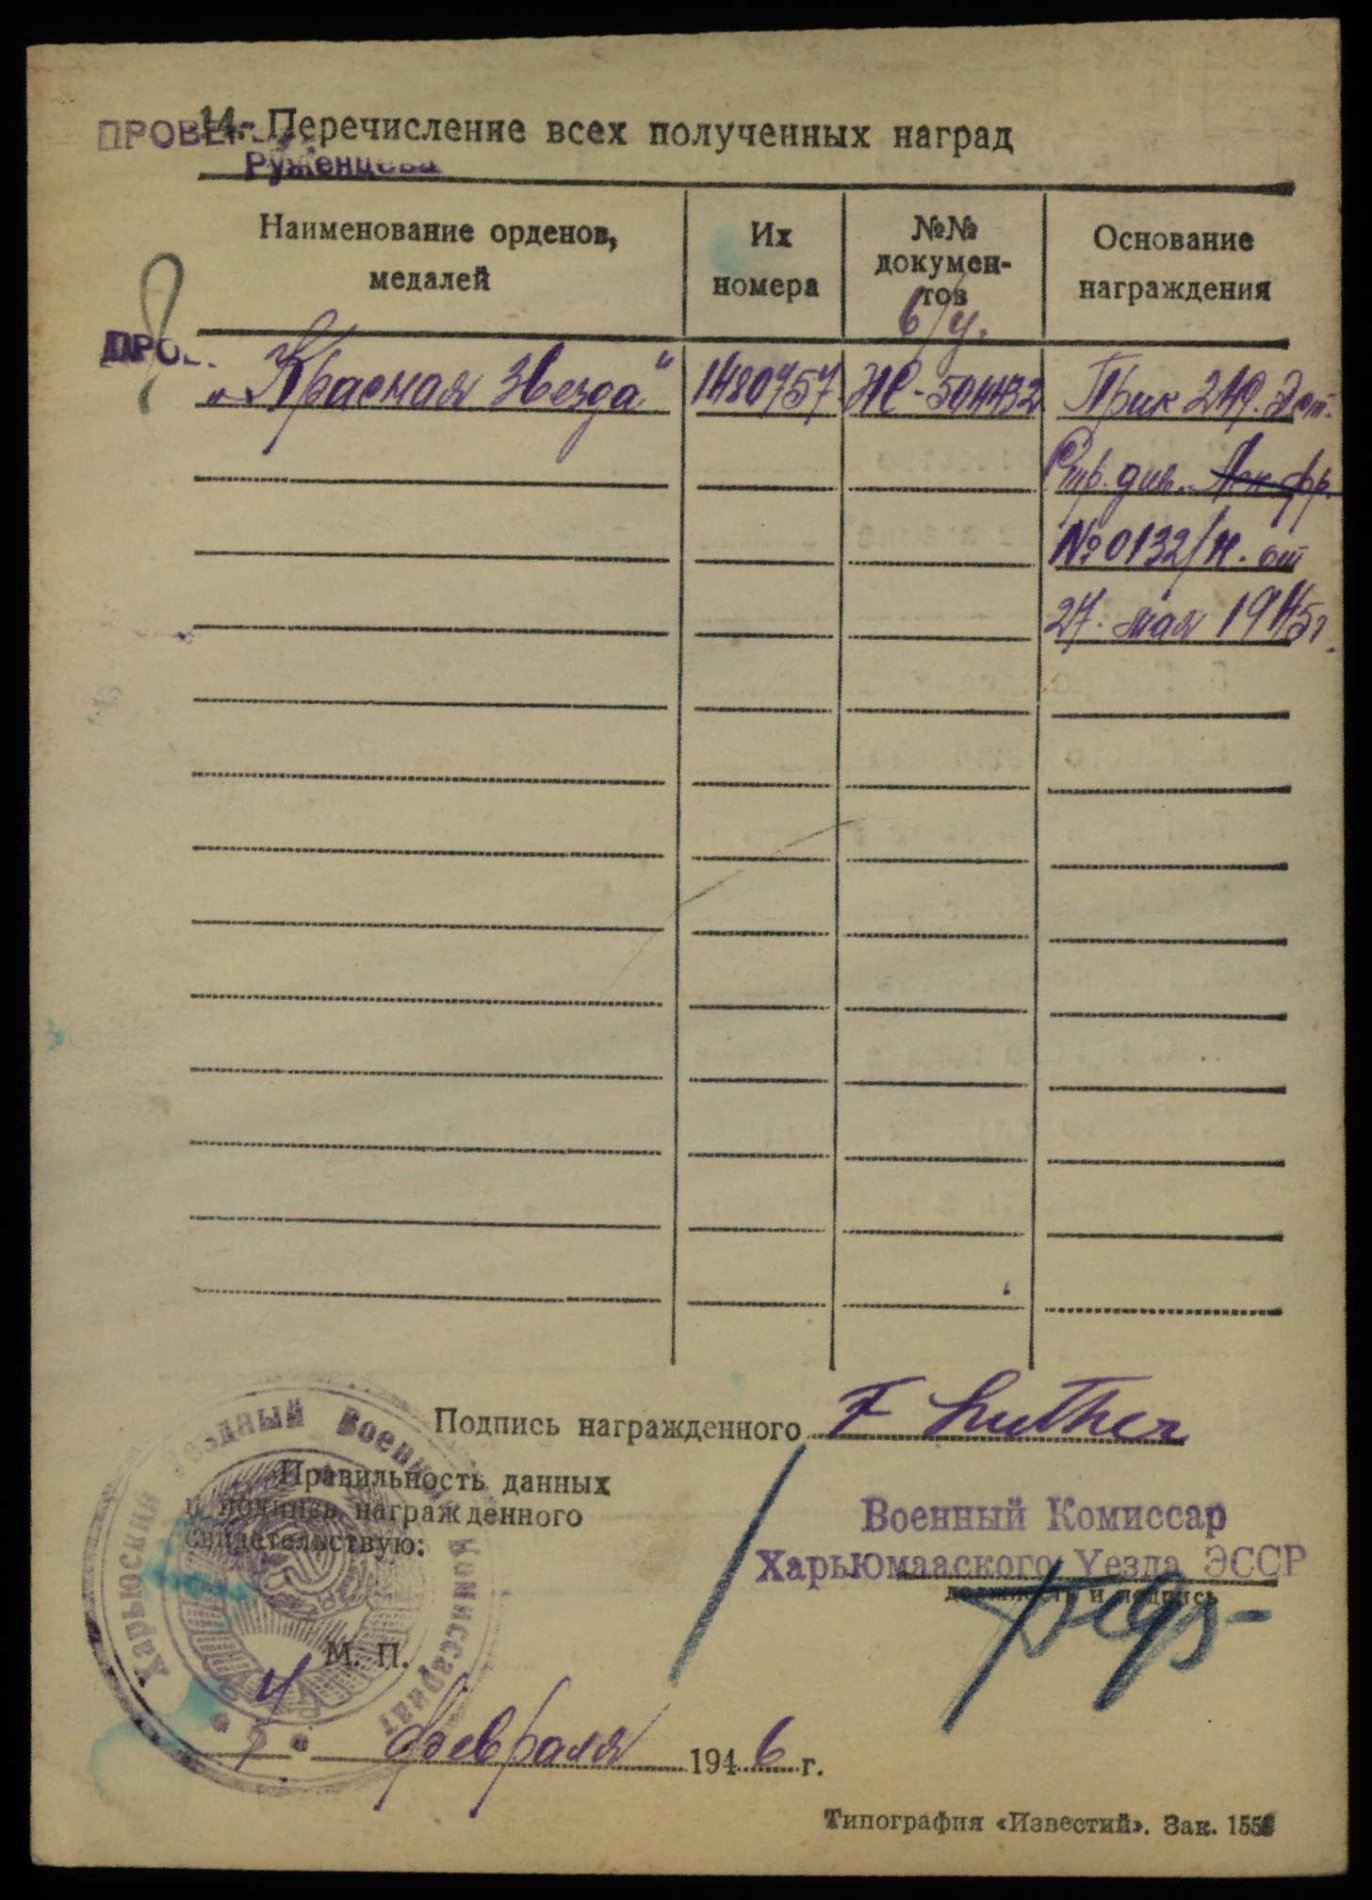 14. Перечисление всех полученных наград
Руженцева
Наименование орденов, медалей
Их номера
№№ документов
Основание награждения
б/у.
„Красная Звезда“ 1480757 НС-504432 Прик 249. Эст.
Стр. див. Лен фр.
№ 0132/н. от
27. мая 1945г.
Подпись награжденного F Luther
Правильность данных
и подпись награжденного
свидетельствую:
Военный Комиссар
ХарьЮмааского Уезда ЭССР
должность и подпись
Харьюский Уездный Военный Комиссариат
М. П.
февраля 1946 г.
Типография «Известий». Зак.